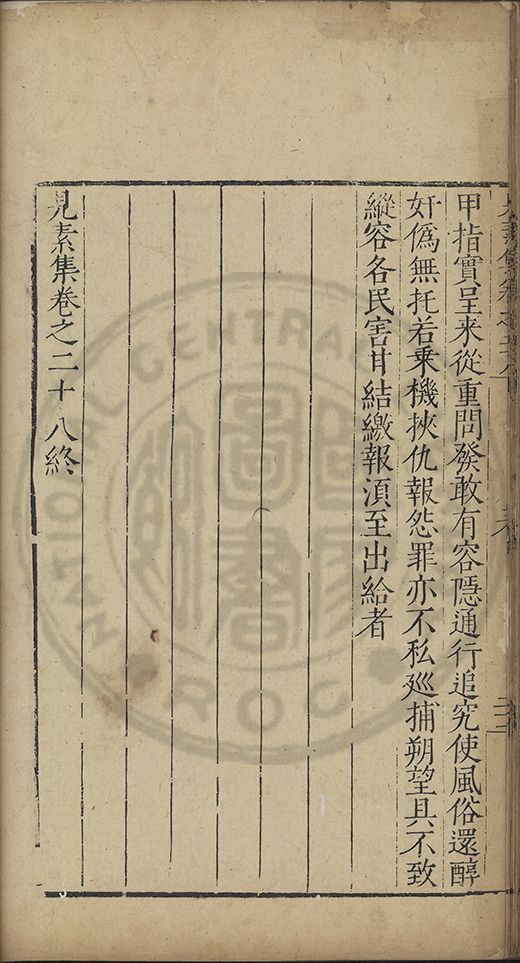 甲指實呈来從重問發敢有容隠通行追究使風俗還醇
奸僞無托若乗機挾仇報怨罪亦不私廵捕朔望具不致
縱容各民害甘結繳報湏至出給者
見素集卷之二十八終